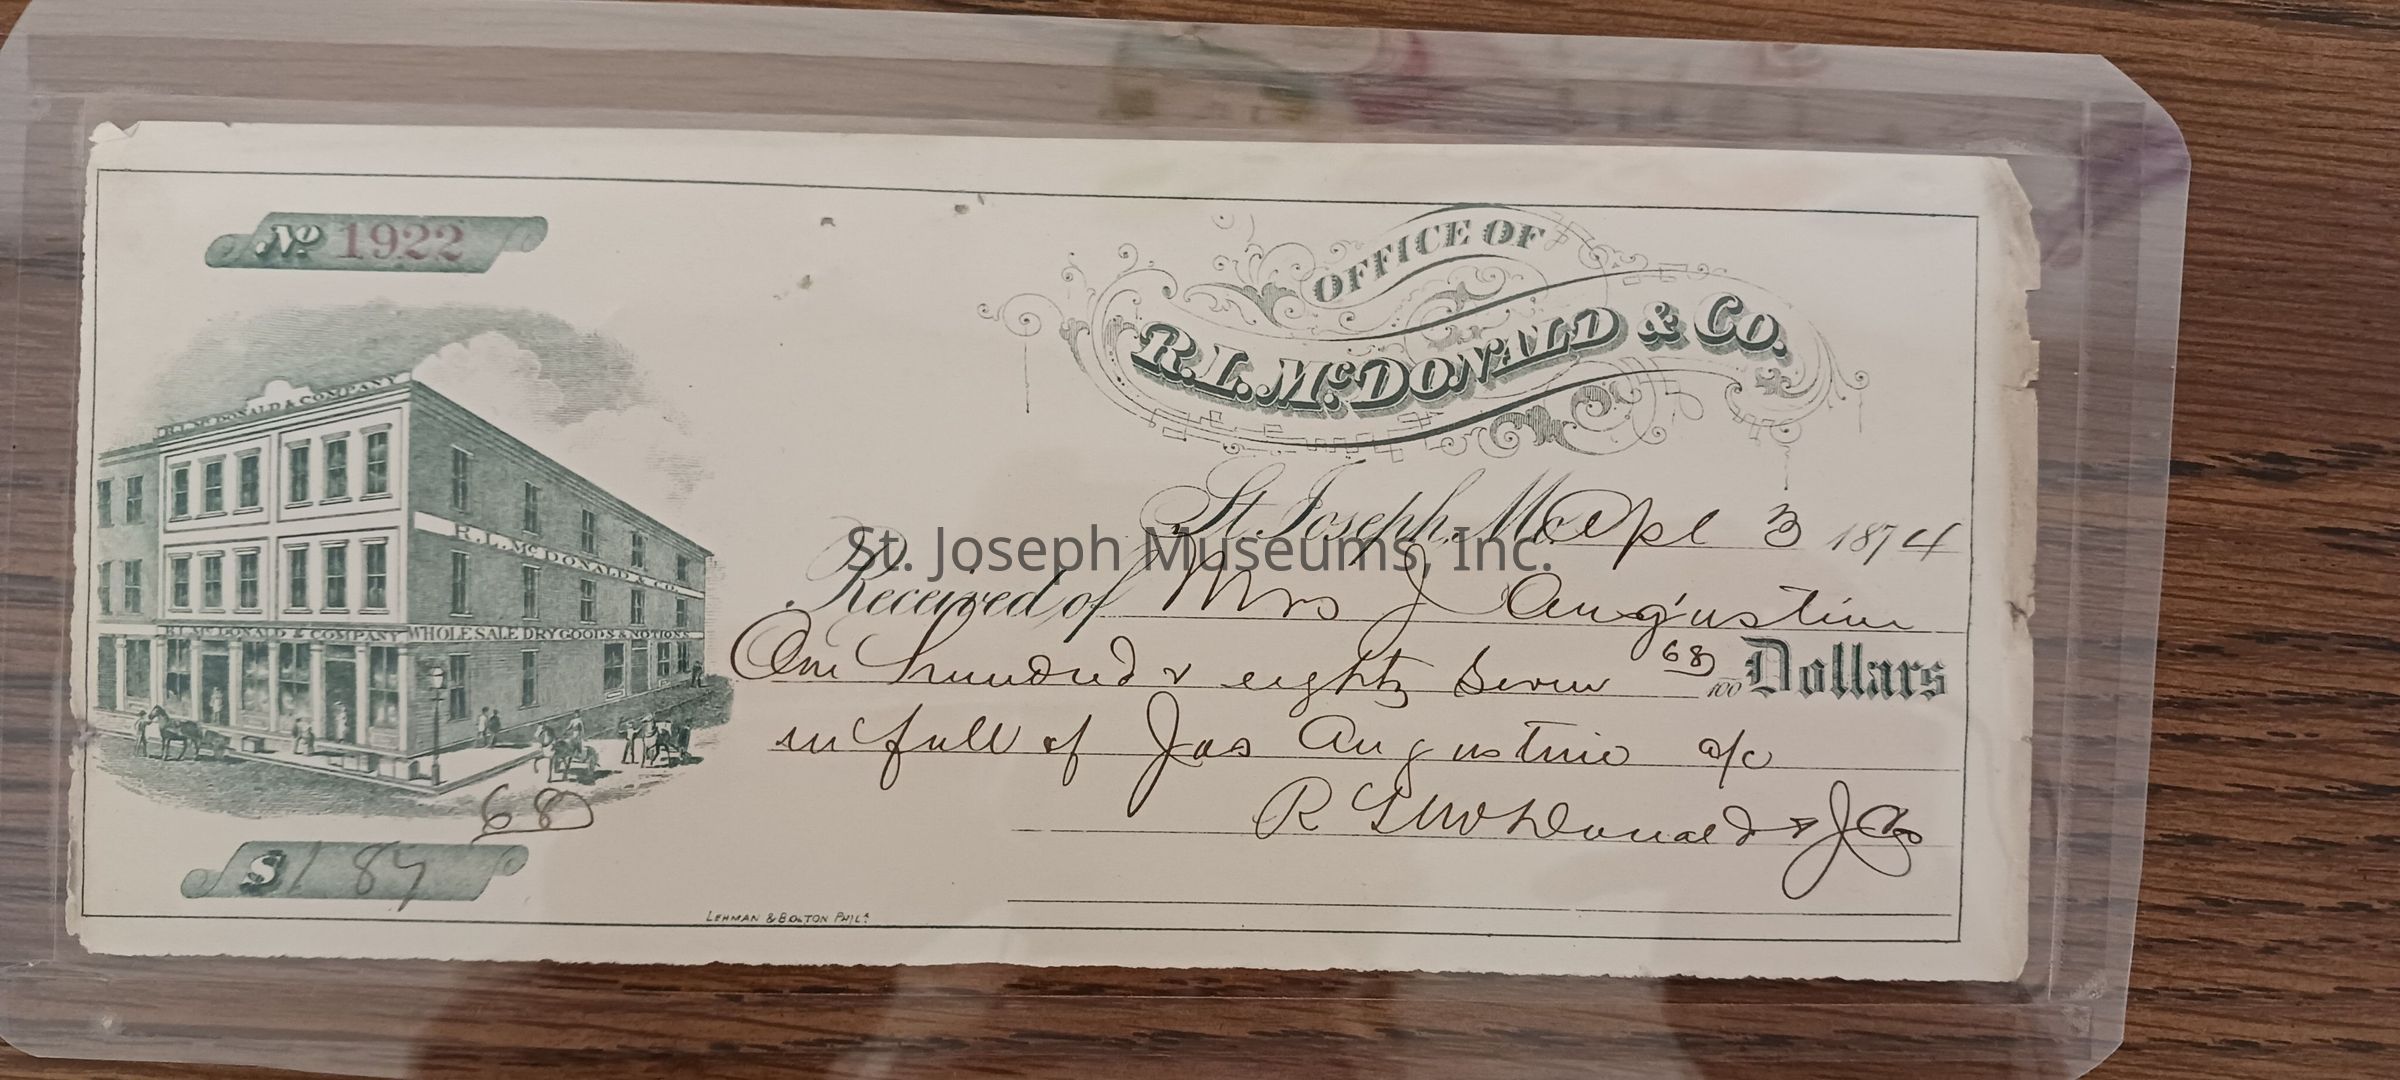 No 1922
OFFICE OF
R. L. McDONALD & Co.
St. Joseph, Mo. Apl 3 1874
St. Joseph Museums, Inc.
Received of Mrs J Augustine
One hundred & eighty Seven 68/100 Dollars
in full of Jas Augustine a/c
R L McDonald & Co
R. L. McDONALD & COMPANY
R. L. McDONALD & CO.
R. L. McDONALD & COMPANY WHOLESALE DRY GOODS & NOTIONS
68
$ 187
LEHMAN & BOLTON PHILA